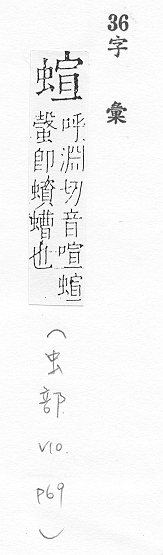 36字彙
蝖
呼淵切音喧蝖
螜卽蟦螬也
(虫部 V10. P69)